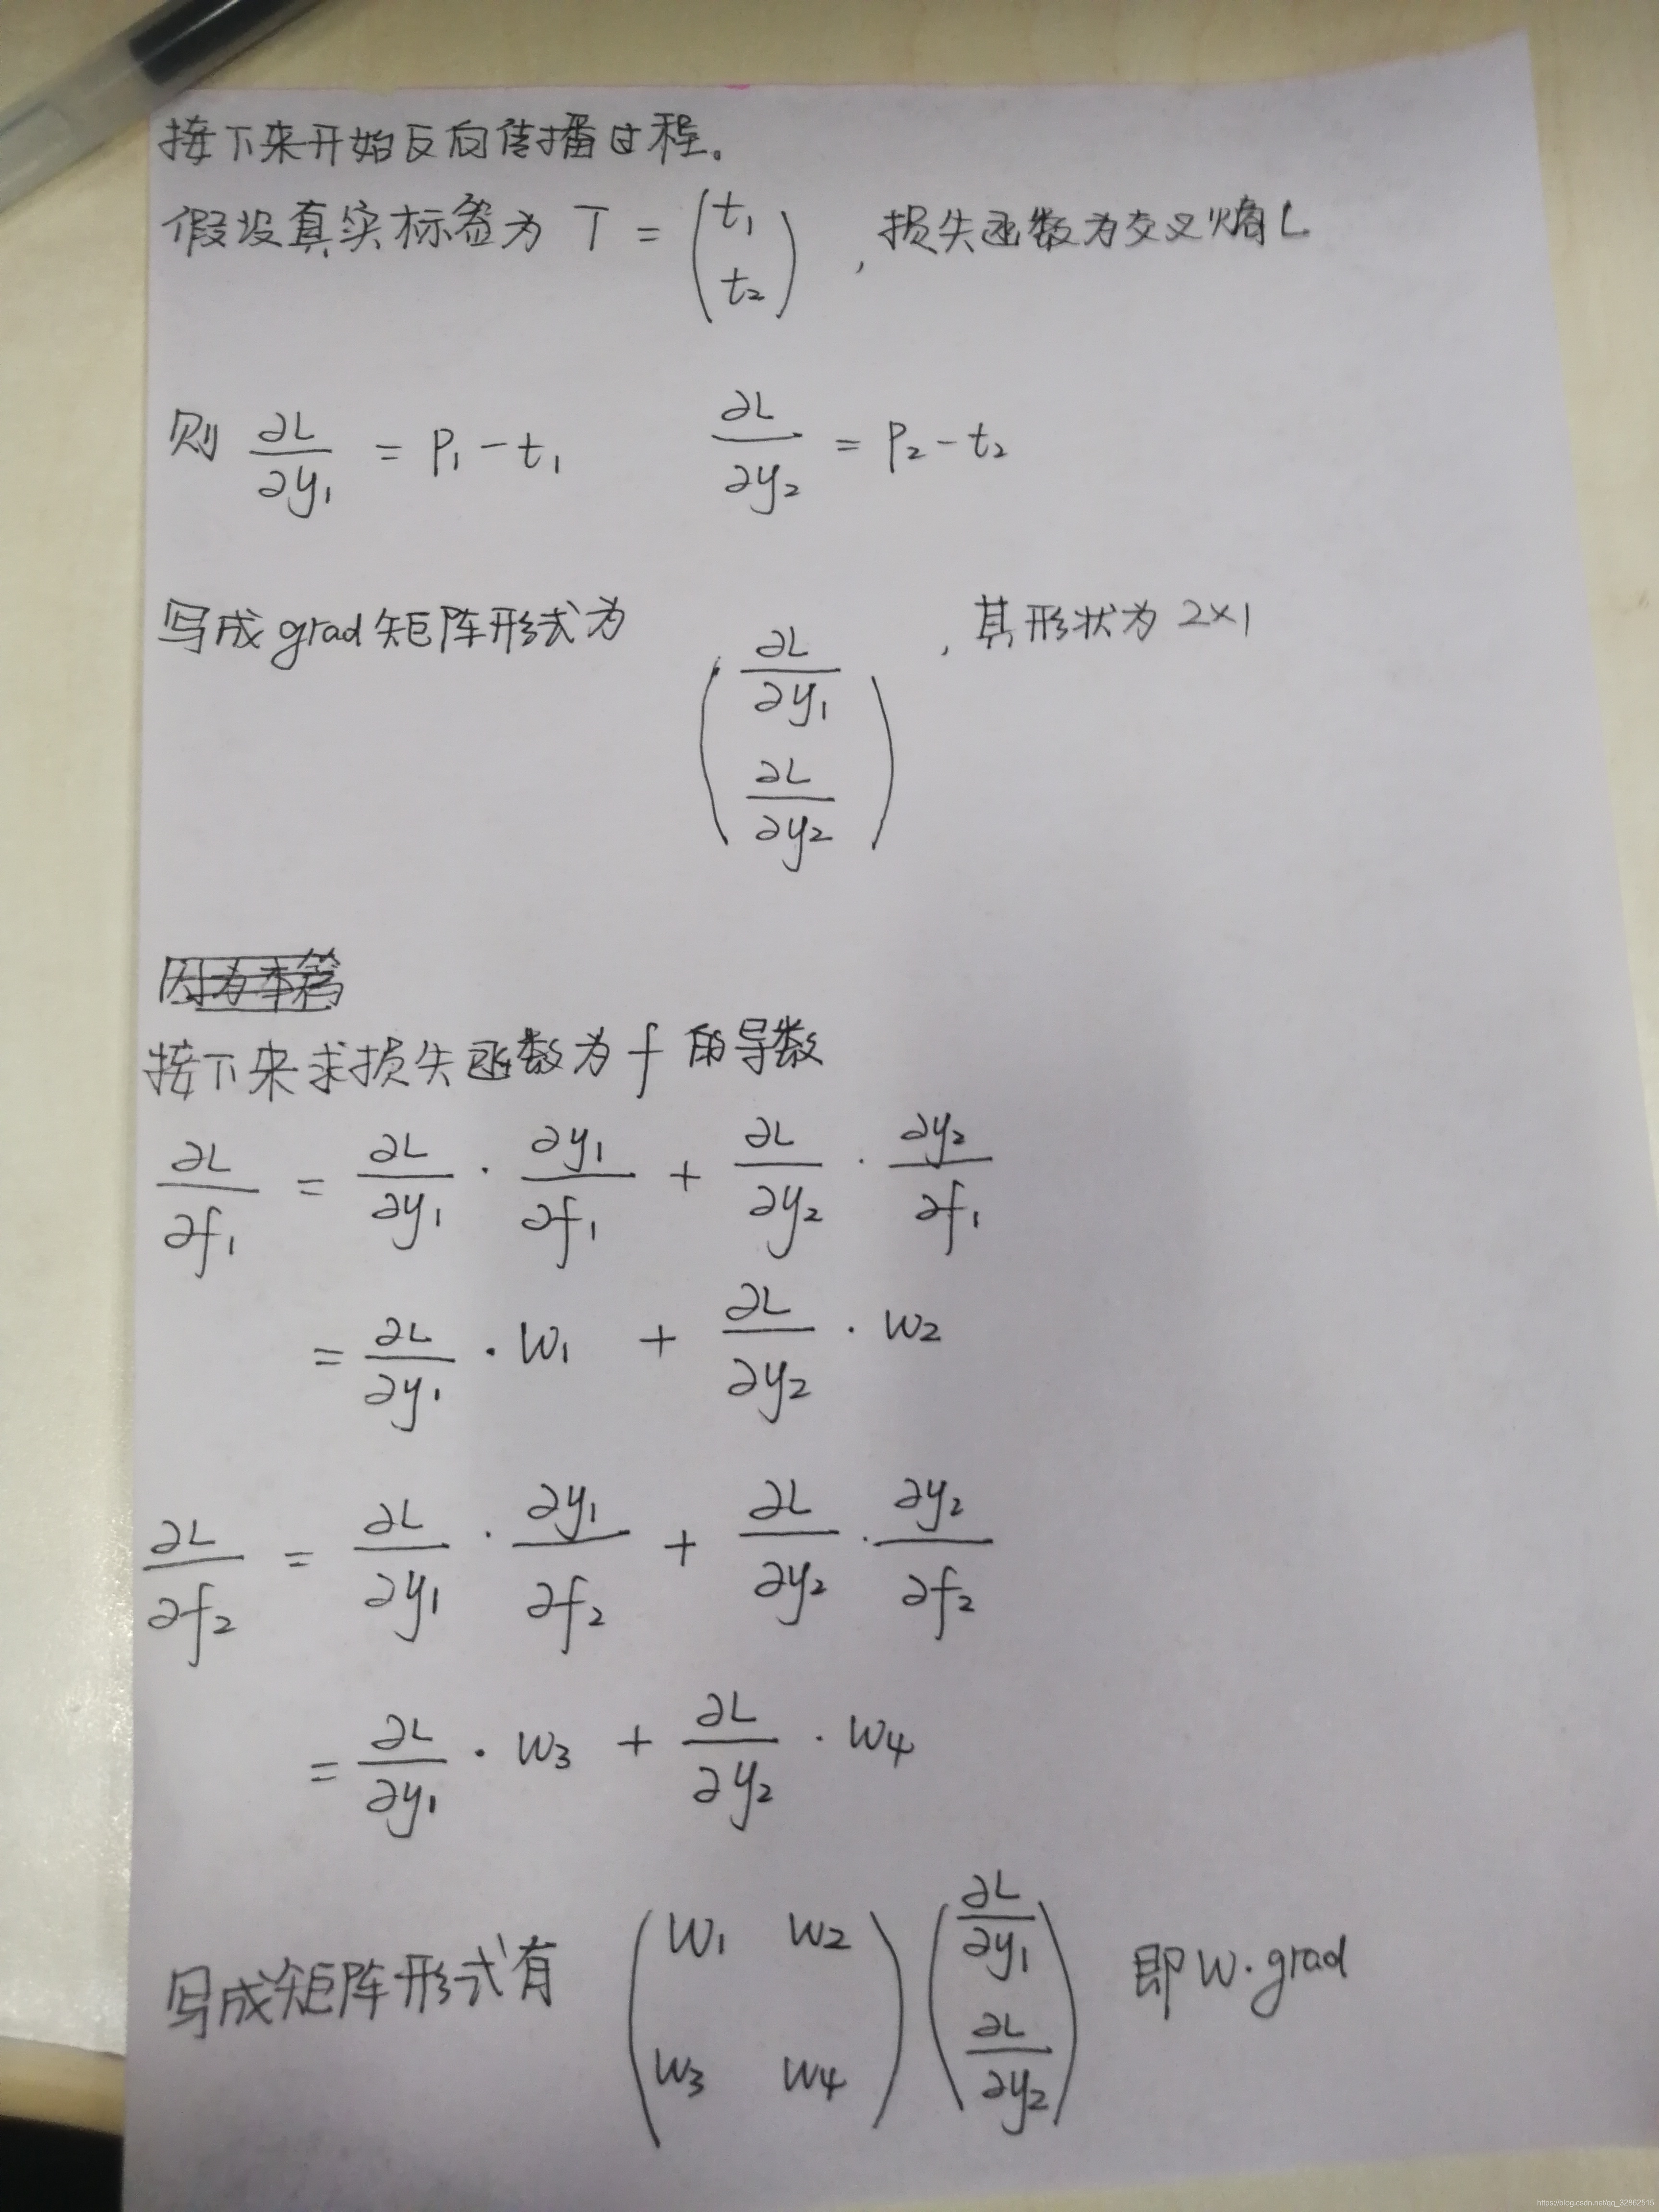 接下来开始反向传播过程。
假设真实标签为 T = (t₁ t₂) , 损失函数为交叉熵L
则 ∂L/∂y₁ = P₁ - t₁ ∂L/∂y₂ = P₂ - t₂
写成grad矩阵形式为 (∂L/∂y₁ ∂L/∂y₂) , 其形状为 2×1
接下来求损失函数为 f 的导数
∂L/∂f₁ = ∂L/∂y₁ · ∂y₁/∂f₁ + ∂L/∂y₂ · ∂y₂/∂f₁
= ∂L/∂y₁ · W₁ + ∂L/∂y₂ · W₂
∂L/∂f₂ = ∂L/∂y₁ · ∂y₁/∂f₂ + ∂L/∂y₂ · ∂y₂/∂f₂
= ∂L/∂y₁ · W₃ + ∂L/∂y₂ · W₄
写成矩阵形式有 (W₁ W₂ W₃ W₄) (∂L/∂y₁ ∂L/∂y₂) 即 W·grad
https://blog.csdn.net/qq_32862515